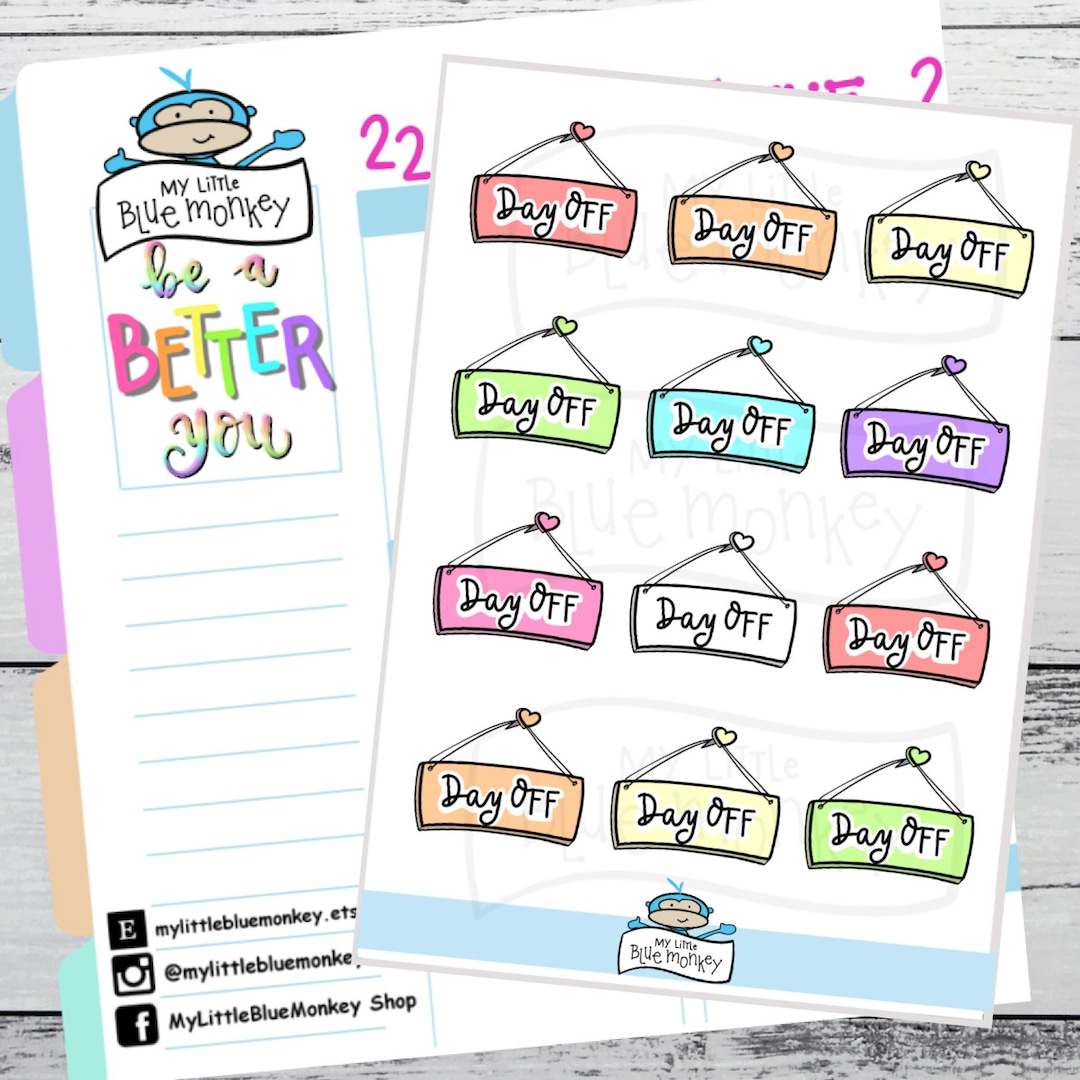 MY LITTLE
BLUE MONKEY
be a
BETTER
you
22
2
Day OFF
Day OFF
Day OFF
Day OFF
Day OFF
Day OFF
Day OFF
Day OFF
Day OFF
Day OFF
Day OFF
Day OFF
MY LITTLE
BLUE MONKEY
MY LITTLE
BLUE MONKEY
MY LITTLE
BLUE MONKEY
E mylittlebluemonkey.ets
@mylittlebluemonkey
f MyLittleBlueMonkey Shop